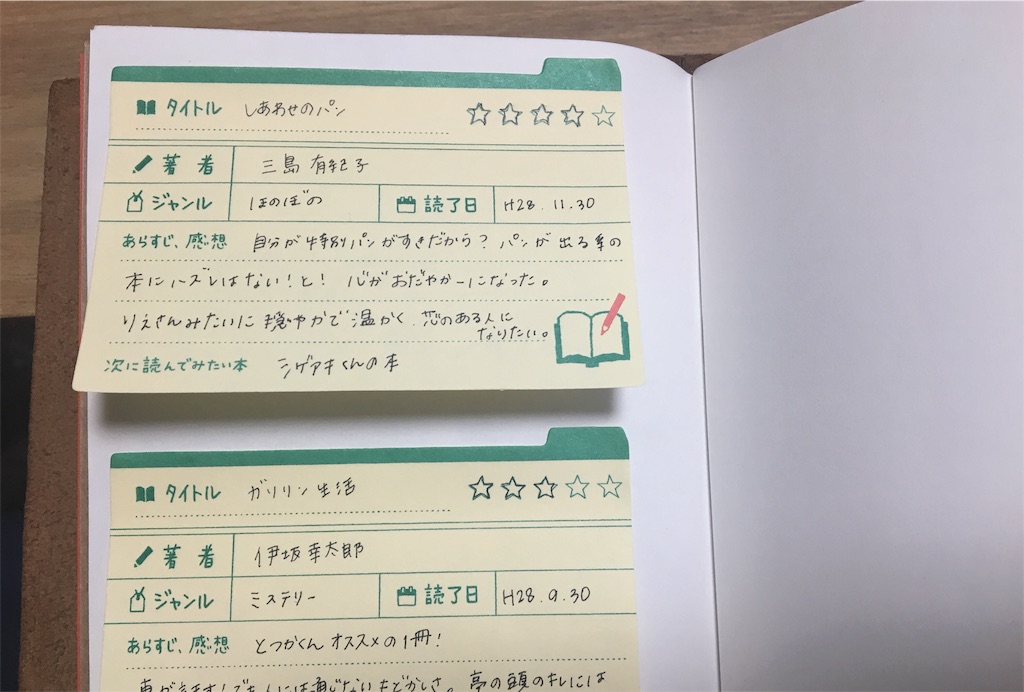 タイトル しあわせのパン
著者 三島 有紀子
ジャンル ほのぼの 読了日 H28.11.30
あらすじ、感想 自分が特別パンがすきだから? パンが出る系の
本にハズレはない!と! 心がおだやかーになった。
りえさんみたいに穏やかで温かく、芯のある人に
なりたい。
次に読んでみたい本 シゲアキくんの本
タイトル ガソリン生活
著者 伊坂幸太郎
ジャンル ミステリー 読了日 H28.9.30
あらすじ、感想 とつかくんオススメの1冊!
人には通じないもどかしさ。亨の頭のキレには